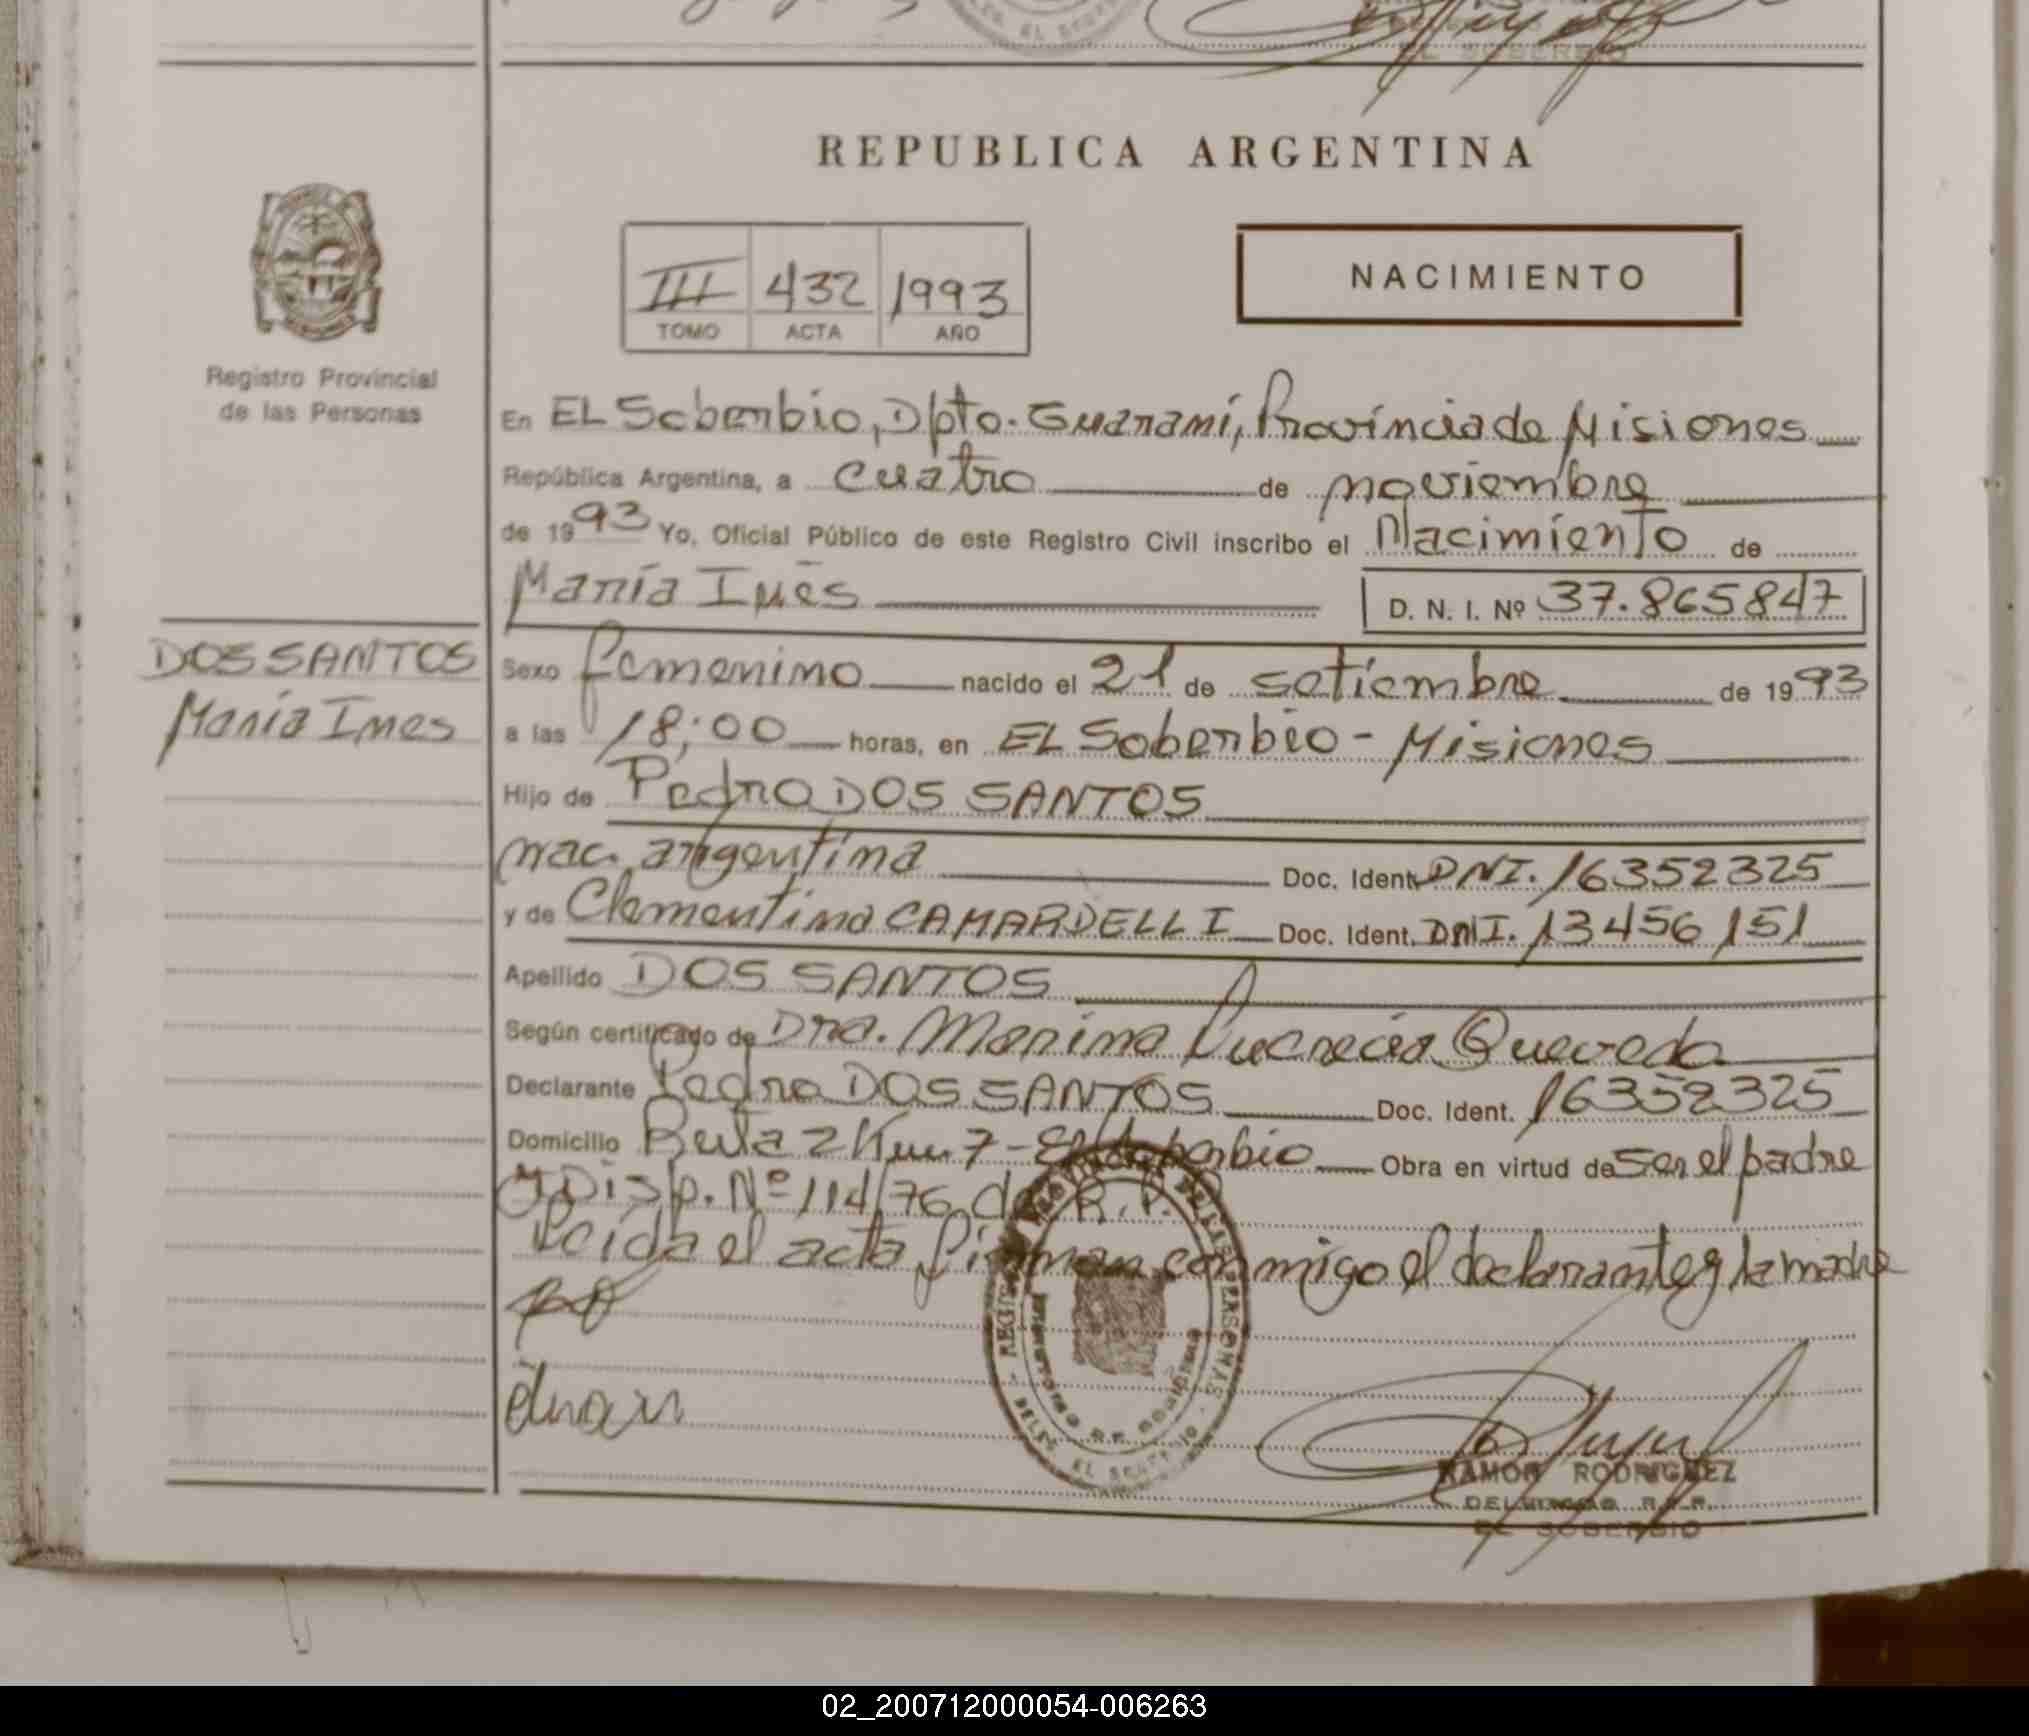 REPUBLICA ARGENTINA
III 432 1993
TOMO ACTA AÑO
NACIMIENTO
Registro Provincial
de las Personas
En EL Soberbio, Dpto. Guaraní, Provincia de Misiones
República Argentina, a cuatro de noviembre
de 1993 Yo, Oficial Público de este Registro Civil inscribo el Nacimiento de
María Inés D. N. I. Nº 37.865847
DOS SANTOS
María Ines
Sexo femenino nacido el 21 de setiembre de 1993
a las 18:00 horas, en EL Soberbio - Misiones
Hijo de Pedro DOS SANTOS
nac. argentina Doc. Ident. DNI. 16352325
y de Clementina CAMARDELLI Doc. Ident. DNI. 13456151
Apellido DOS SANTOS
Según certificado de Dra. Marina Lucrecia Quevedo
Declarante Pedro DOS SANTOS Doc. Ident. 16352325
Domicilio Ruta 2 Km 7 - El Soberbio Obra en virtud de ser el padre
y Disp. Nº 114/76 del R.P.
Leída el acta firman conmigo el declarante y la madre
RAMON RODRIGUEZ
DELEGADO R.P.P.
EL SOBERBIO
02_200712000054-006263